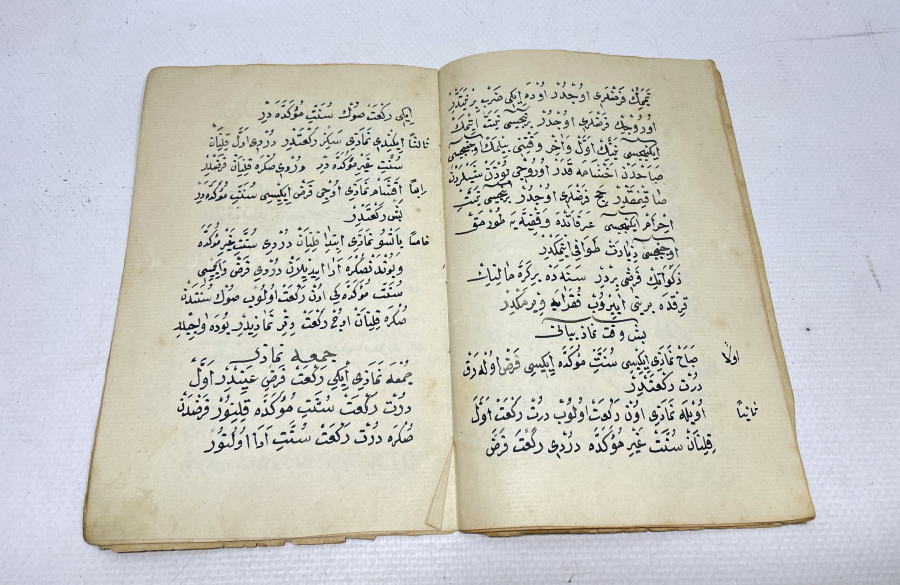 تَيَمّمُكْ فَرْضْلَرِى اُوجْدُرْ اُودَه اِيكِى ضَرْبِ بِرْ نِيَّتْدِرْ
اُورُوجُكْ فَرْضْلَرِى اُوجْدُرْ بِرِنْجِيسِى نِيَّتْ اِيتْمَكْ
اِيكِنْجِيسِى نِيَّتِكْ اَوَّلْ وَآخِرْ وَقْتِنِى بِيلْمَكْ اُوچِنْجِيسِى
صَباحْدَنْ اَخْشَامَه قَدَرْ اُورُوجِى بُوزَنْ شَيْلَرْدَنْ
صَاقِنْمَقْدِرْ حَجّ فَرْضْلَرِى اُوچْدُرْ بِرِنْجِيسِى نِيَّتْ
اِحْرَامْ اِيكِنْجِيسِى عَرَفَاتْدَه وَقْفَيَه يَه طُورْمَقْ
اُوچِنْجِيسِى زِيَارَتْ طَوَافِى اِيتْمَكْدِرْ
زَكَوٰاتِكْ فَرْضِى بِرْدِرْ سَنَه دَه بِرْكَرَه مَالِنِكْ
قِرْقْدَه بِرِينِى اَيِيرُوبْ فُقَرَايَه وِيرْمَكْدِرْ
بش وقت نماز بيانى
اولا صَباحْ نَمَازِى اِيكِيسِى سُنَّتِ مُوْكَدَّه اِيكِيسِى فَرْضْ اُولَه رَقْ
دُرْتْ رَكْعَتْدِرْ
ثانياً اُويْلَه نَمَازِى اُونْ رَكْعَتْ اُولُوبْ دُرْتْ رَكْعَتْ اَوَّلْ
قِلِنَانْ سُنَّتْ غَيْرِ مُوْكَدَّه دُرْدِى رَكْعَتْ فَرْضْ
اِيكِى رَكْعَتْ صُوكْ سُنَّتِ مُوْكَدَّه دِرْ
ثالثاً اِيكِنْدِى نَمَازِى سَكِزْ رَكْعَتْدِرْ دُرْدِى اَوَّلْ قِلِنَانْ
سُنَّتِ غَيْرِ مُوْكَدَّه دِرْ دُرْدِى صُكْرَه قِلِنَانْ فَرْضْدِرْ
رابعاً اَقْشَامْ نَمَازِى اُوچِى فَرْضْ اِيكِيسِى سُنَّتِ مُوْكَدَّه دِرْ
بَشْ رَكْعَتْدِرْ
خامساً يَاتْسُو نَمَازِى اِبْتِدَا قِلِنَانْ دُرْدِى سُنَّتِ غَيْرِ مُوْكَدَّه
وَبُونْدَنْ صُكْرَه اَدَا اِيدِيلَنْ دُرْدِى فَرْضْ وَاِيكِيسِى
سُنَّتِ مُوْكَدَّه لِى اُونْ رَكْعَتْ اُولُوبْ صُوكْ سُنَّتْدَنْ
صُكْرَه قِلِنَانْ اُوچْ رَكْعَتْ وِتِرْ نَمَازِيدِرْ بُودَه وَاجِبْدِرْ
جمعه نمازى
جُمْعَه نَمَازِى اِيكِى رَكْعَتْ فَرْضِ عَيْنْدِرْ اَوَّلْ
دُرْتْ رَكْعَتْ سُنَّتِ مُوْكَدَّه قِلِنُورْ فَرْضْدَنْ
صُكْرَه دُرْتْ رَكْعَتْ سُنَّتِ اَدَا اُولُنُورْ